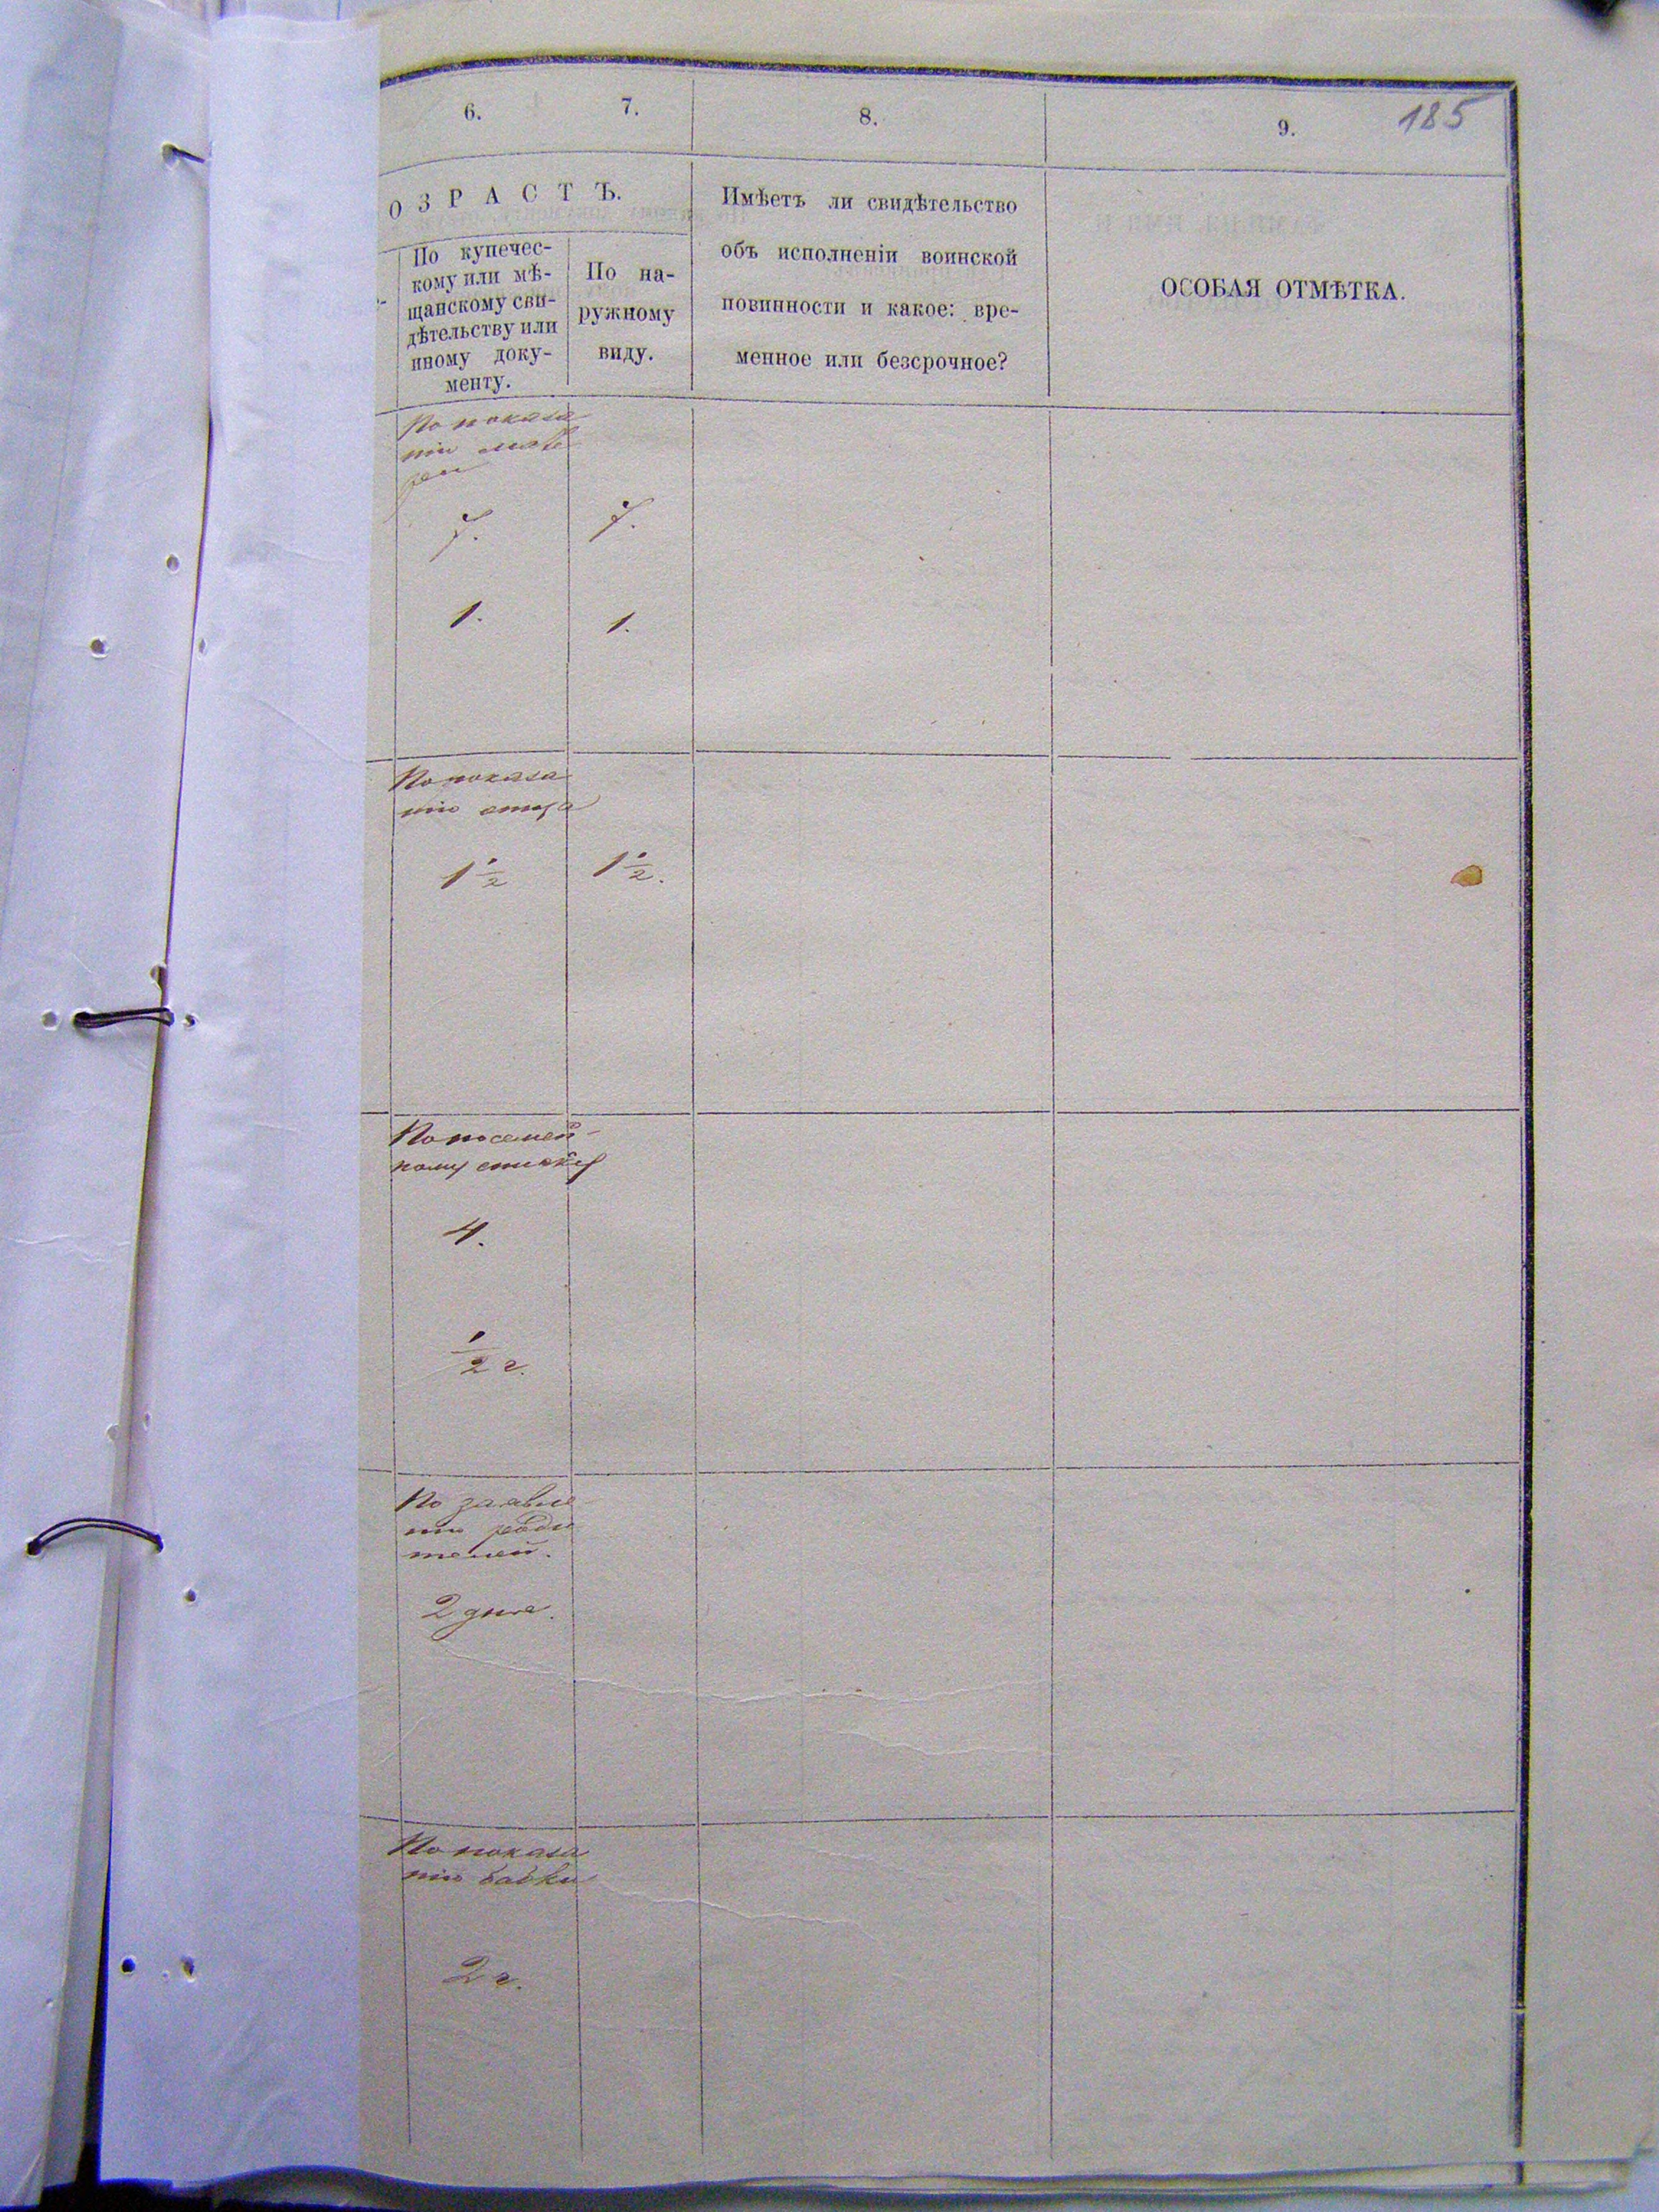 6.
7.
8.
9.
185
ОЗРАСТЪ.
По купечес-
кому или мѣ-
щанскому сви-
дѣтельству или
иному доку-
менту.
По на-
ружному
виду.
Имѣетъ ли свидѣтельство
объ исполненіи воинской
повинности и какое: вре-
менное или безсрочное?
ОСОБАЯ ОТМѢТКА.
По показа
нію мате
ри
7.
7.
1.
1.
По показа
нію отца
1 1/2
1 1/2.
По посемей-
ному списку
4.
1/2 г.
По заявле
нію роди
телей.
2 дня.
По показа
нію бабки
2 г.